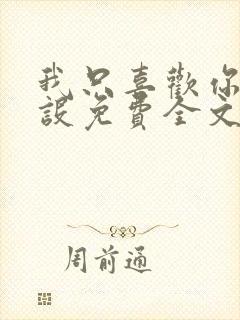 我只喜歡你
設免費全文
周前通